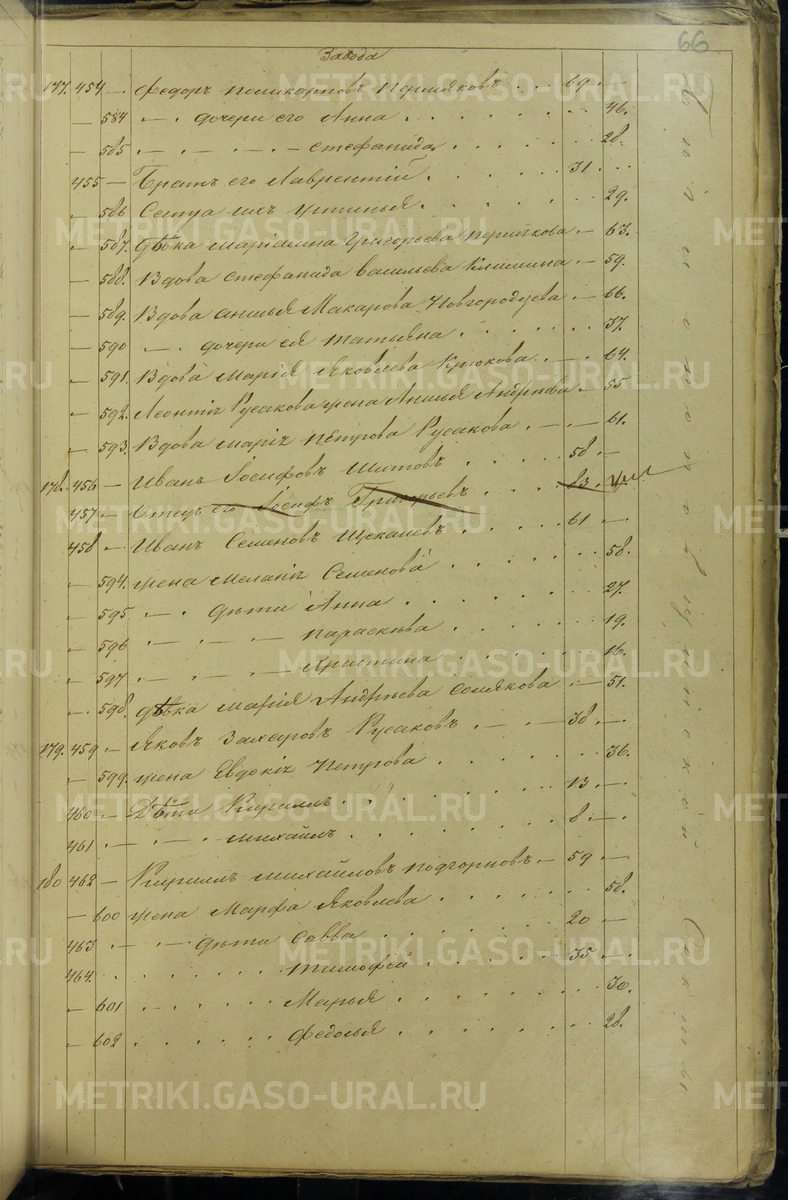 66
Завода
177. 454 — Федоръ Поликарповъ Пермяковъ . . 69. —
— 584 — . дочери его Анна . . . . . . . 46.
— 585 — . — . — . — Стефанида . . . . . . 28.
455 — Братъ его Лаврентій . . . . . . 31 . . .
— 586 Сестра ихъ Устинья . . . . . . 29.
— 587. дѣвка Маріамна Григорьева Пермякова . — 63.
— 588. Вдова Стефанида Васильева Климина . — 59.
— 589. Вдова Анисья Макарова Новгородцева . — 66.
— 590 — . дочери ея Татьяна . . . . . . 37.
— 591. Вдова Марія Яковлева Крюкова . — . 64.
— 592. Леонтія Русакова жена Анисья Андреева . 55
— 593. Вдова Марія Петрова Русакова . — . — 61.
178. 456 — Иванъ Іосифовъ Шитовъ . . . . 58. —
457 — Отецъ его Іосифъ Григорьевъ . . . 83.
458 — Иванъ Семеновъ Щекалевъ . . . . 61 —
— 594. жена Меланія Семенова . . . . . . 58.
— 595 — . дѣти Анна . . . . . . . 27.
— 596 — . — . — . — Параскева . . . . . . 19.
— 597 — . — . — . — Христина . . . . . . 16.
— . 598. дѣвка Марія Андреева Солякова . — 51.
179. 459. — Яковъ Захаровъ Русаковъ . — . — 38. —
— 599. жена Евдокія Петрова . . . . . . 36.
460 — Дѣти Кириллъ . . . . . . . 13 —
461 — . — . — . Михаилъ . . . . . . . 8. —
180 462 — Кириллъ Михайловъ Подгорновъ . — 59 —
— 600 жена Марфа Яковлева . . . . . . 58.
463 . — . — . дѣти Савва . . . . . . . 20 —
464. . . . . . . Тимофей . . . . . . 35 —
— 601 — . . . . . Марья . . . . . . . 30.
— 602 . . . . . . Федосья . . . . . . . 28.
METRIKI.GASO-URAL.RU